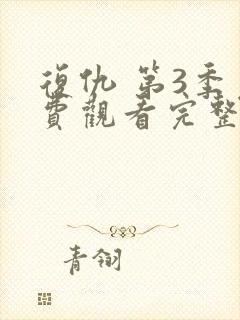 復仇 第3季
費觀看完整
青翎